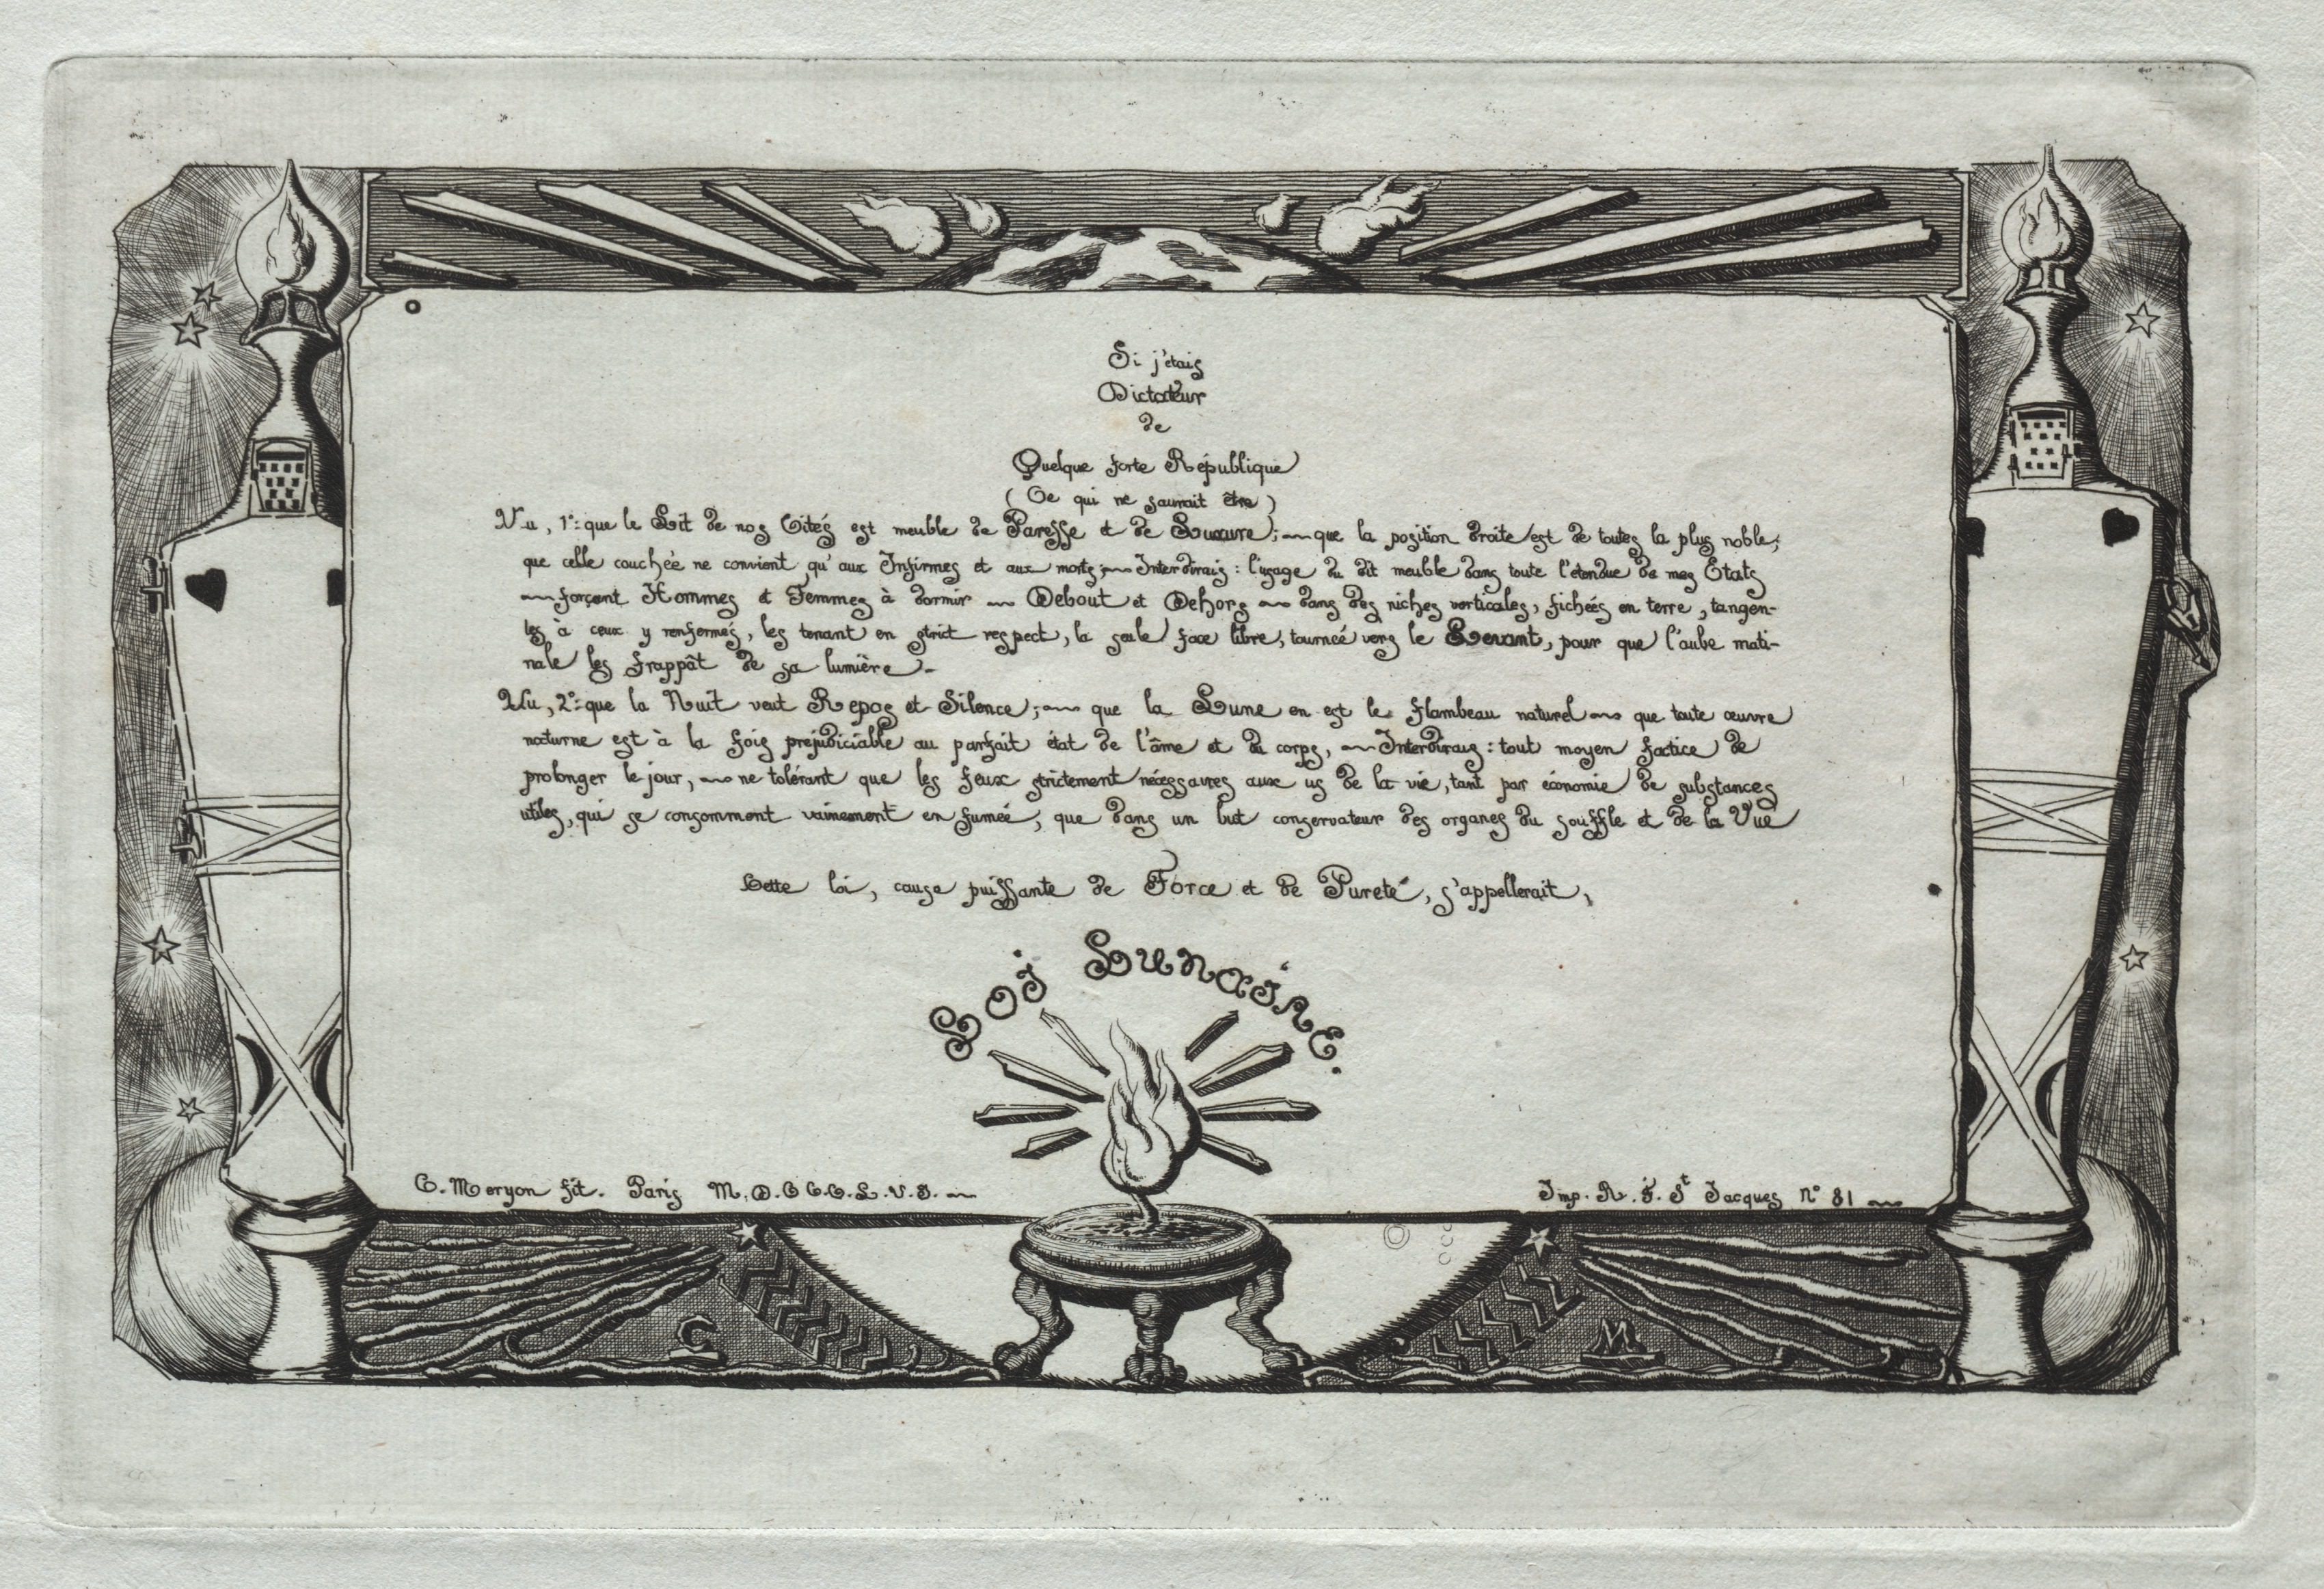 Si j'étais
Dictateur
de
Quelque forte République
( Ce qui ne saurait être )
Vu, 1º: que le Lit de nos Cités est meuble de Paresse et de Luxure; ~ que la position droite est de toutes la plus noble;
que celle couchée ne convient qu'aux Infirmes et aux morts; ~ Interdirais : l'usage du dit meuble dans toute l'étendue de mes Etats
~ forçant Hommes et Femmes à dormir ~ Debout et Dehors ~ dans des niches verticales, fichées en terre, tangen-
tes à ceux y renfermés, les tenant en strict respect, la seule face libre, tournée vers le Levant, pour que l'aube mati-
nale les frappât de sa lumière -
Vu, 2º: que la Nuit veut Repos et Silence; ~ que la Lune en est le flambeau naturel ~ que toute œuvre
nocturne est à la fois prejudiciable au parfait état de l'âme et du corps, ~ Interdirais : tout moyen factice de
prolonger le jour, ~ ne tolérant que les feux strictement nécessaires aux us de la vie, tant par économie de substances
utiles, qui se consomment vainement en fumée, que dans un but conservateur des organes du souffle et de la Vue
Cette loi, cause puissante de Force et de Pureté, s'appellerait,
Loi Lunaire.
C. Meryon fit. Paris M.D.C.C.C.L.V.I. ~
Imp. R. N. St Jacques Nº 81 ~
C
M